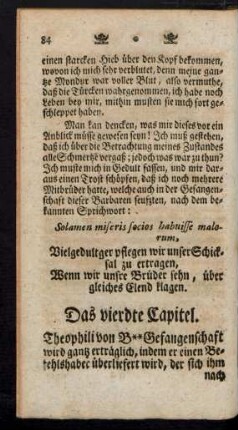 84
einen starcken Hieb über den Kopf bekommen,
wovon ich mich sehr verblutet, denn meine gan-
tze Mondur war voller Blut, also vermuthe,
daß die Türcken wahrgenommen, ich habe noch
Leben bey mir, mithin musten sie mich fort ge-
schleppet haben.
Man kan dencken, was mir dieses vor ein
Anblick müsse gewesen seyn! Ich muß gestehen,
daß ich über die Betrachtung meines Zustandes
alle Schmertzē vergaß; jedoch was war zu thun?
Ich muste mich in Gedult fassen, und mir dar-
aus einen Trost schöpffen, daß ich noch mehrere
Mitbrüder hatte, welche auch in der Gefangen-
schaft dieser Barbaren seufzten, nach dem be-
kannten Sprichwort:
Solamen miseris socios habuisse malo-
rum,
Vielgedultger pflegen wir unser Schick-
sal zu ertragen,
Wenn wir unsre Brüder sehn, über
gleiches Elend klagen.
Das vierdte Capitel.
Theophili von B** Gefangenschaft
wird gantz erträglich, indem er einen Be-
fehlshaber überliefert wird, der sich ihm
nach